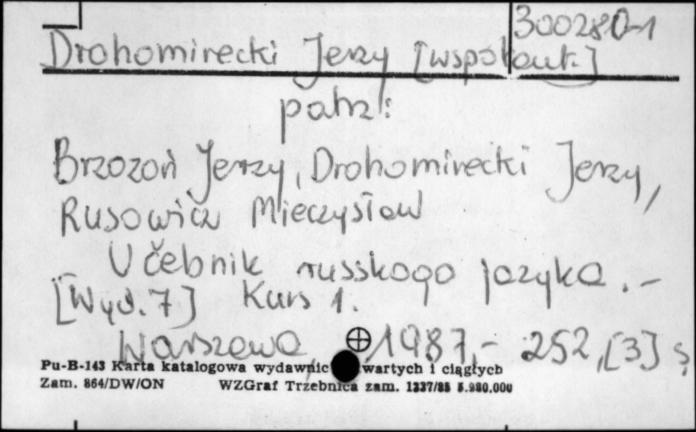 300280-1
Drohomirecki Jerzy [współaut.]
patrz:
Brzozoń Jerzy, Drohomirecki Jerzy,
Rusowicz Mieczysław
Učebnik russkogo jazyka. -
[Wyd. 7] Kurs 1.
Warszawa 1987, - 252, [3] s,
Pu-B-143 Karta katalogowa wydawnic wartych i ciągłych
Zam. 864/DW/ON WZGraf Trzebnica zam. 1337/88 5.980.000